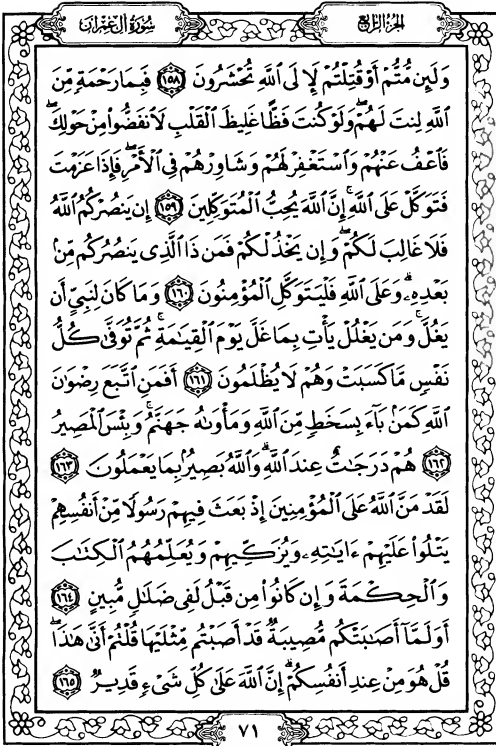 سُورَةُ آلِ عِمْرَان
الجُزءُ الرَّابِع
وَلَئِن مُّتُّمْ أَوْ قُتِلْتُمْ لَإِلَى ٱللَّهِ تُحْشَرُونَ ١٥٨ فَبِمَا رَحْمَةٍ مِّنَ
ٱللَّهِ لِنتَ لَهُمْ ۖ وَلَوْ كُنتَ فَظًّا غَلِيظَ ٱلْقَلْبِ لَٱنفَضُّوا۟ مِنْ حَوْلِكَ ۖ
فَٱعْفُ عَنْهُمْ وَٱسْتَغْفِرْ لَهُمْ وَشَاوِرْهُمْ فِى ٱلْأَمْرِ ۖ فَإِذَا عَزَمْتَ
فَتَوَكَّلْ عَلَى ٱللَّهِ ۚ إِنَّ ٱللَّهَ يُحِبُّ ٱلْمُتَوَكِّلِينَ ١٥٩ إِن يَنصُرْكُمُ ٱللَّهُ
فَلَا غَالِبَ لَكُمْ ۖ وَإِن يَخْذُلْكُمْ فَمَن ذَا ٱلَّذِى يَنصُرُكُم مِّنۢ
بَعْدِهِۦ ۗ وَعَلَى ٱللَّهِ فَلْيَتَوَكَّلِ ٱلْمُؤْمِنُونَ ١٦٠ وَمَا كَانَ لِنَبِىٍّ أَن
يَغُلَّ ۚ وَمَن يَغْلُلْ يَأْتِ بِمَا غَلَّ يَوْمَ ٱلْقِيَٰمَةِ ۚ ثُمَّ تُوَفَّىٰ كُلُّ
نَفْسٍ مَّا كَسَبَتْ وَهُمْ لَا يُظْلَمُونَ ١٦١ أَفَمَنِ ٱتَّبَعَ رِضْوَٰنَ
ٱللَّهِ كَمَنۢ بَآءَ بِسَخَطٍ مِّنَ ٱللَّهِ وَمَأْوَىٰهُ جَهَنَّمُ ۚ وَبِئْسَ ٱلْمَصِيرُ
١٦٢ هُمْ دَرَجَٰتٌ عِندَ ٱللَّهِ ۗ وَٱللَّهُ بَصِيرٌۢ بِمَا يَعْمَلُونَ ١٦٣
لَقَدْ مَنَّ ٱللَّهُ عَلَى ٱلْمُؤْمِنِينَ إِذْ بَعَثَ فِيهِمْ رَسُولًا مِّنْ أَنفُسِهِمْ
يَتْلُوا۟ عَلَيْهِمْ ءَايَٰتِهِۦ وَيُزَكِّيهِمْ وَيُعَلِّمُهُمُ ٱلْكِتَٰبَ
وَٱلْحِكْمَةَ وَإِن كَانُوا۟ مِن قَبْلُ لَفِى ضَلَٰلٍ مُّبِينٍ ١٦٤
أَوَلَمَّآ أَصَٰبَتْكُم مُّصِيبَةٌ قَدْ أَصَبْتُم مِّثْلَيْهَا قُلْتُمْ أَنَّىٰ هَٰذَا ۖ
قُلْ هُوَ مِنْ عِندِ أَنفُسِكُمْ ۗ إِنَّ ٱللَّهَ عَلَىٰ كُلِّ شَىْءٍ قَدِيرٌ ١٦٥
٧١